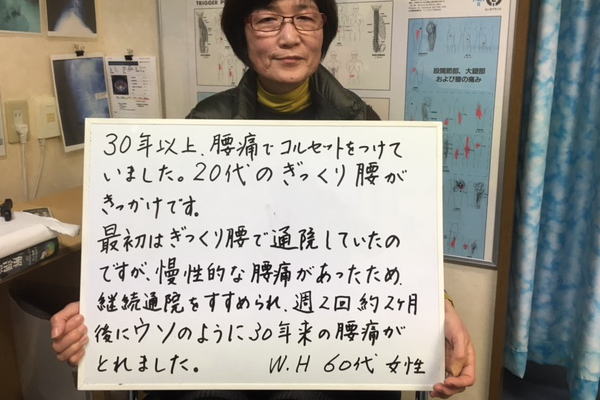 TRIGGER P
股関節部、大腿部
および膝の痛み
30年以上、腰痛でコルセットをつけて
いました。20代のぎっくり腰が
きっかけです。
最初はぎっくり腰で通院していたの
ですが、慢性的な腰痛があったため、
継続通院をすすめられ、週2回 約2ヶ月
後にウソのように30年来の腰痛が
とれました。 W.H 60代 女性